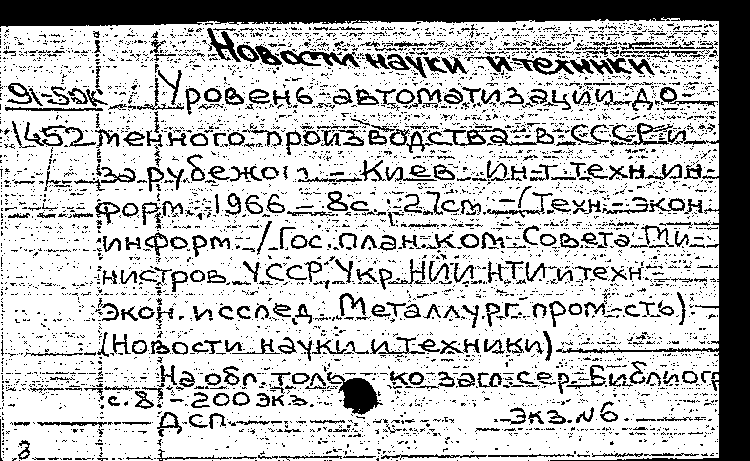 Новости науки и техники
91-50к Уровень автоматизации до-
1452 менного производства в СССР и
за рубежом – Киев Ин-т техн ин-
форм., 1966 – 8с.; 27см. – (Техн.-экон
информ. / Гос. план. ком Совета Ми-
нистров УССР, Укр НИИ НТИ и техн
экон. исслед Металлург. пром-сть)
(Новости науки и техники)
На обл. толь ко загл. сер. Библиогр
с. 8 – 200 экз.
ДСП экз. №6
3